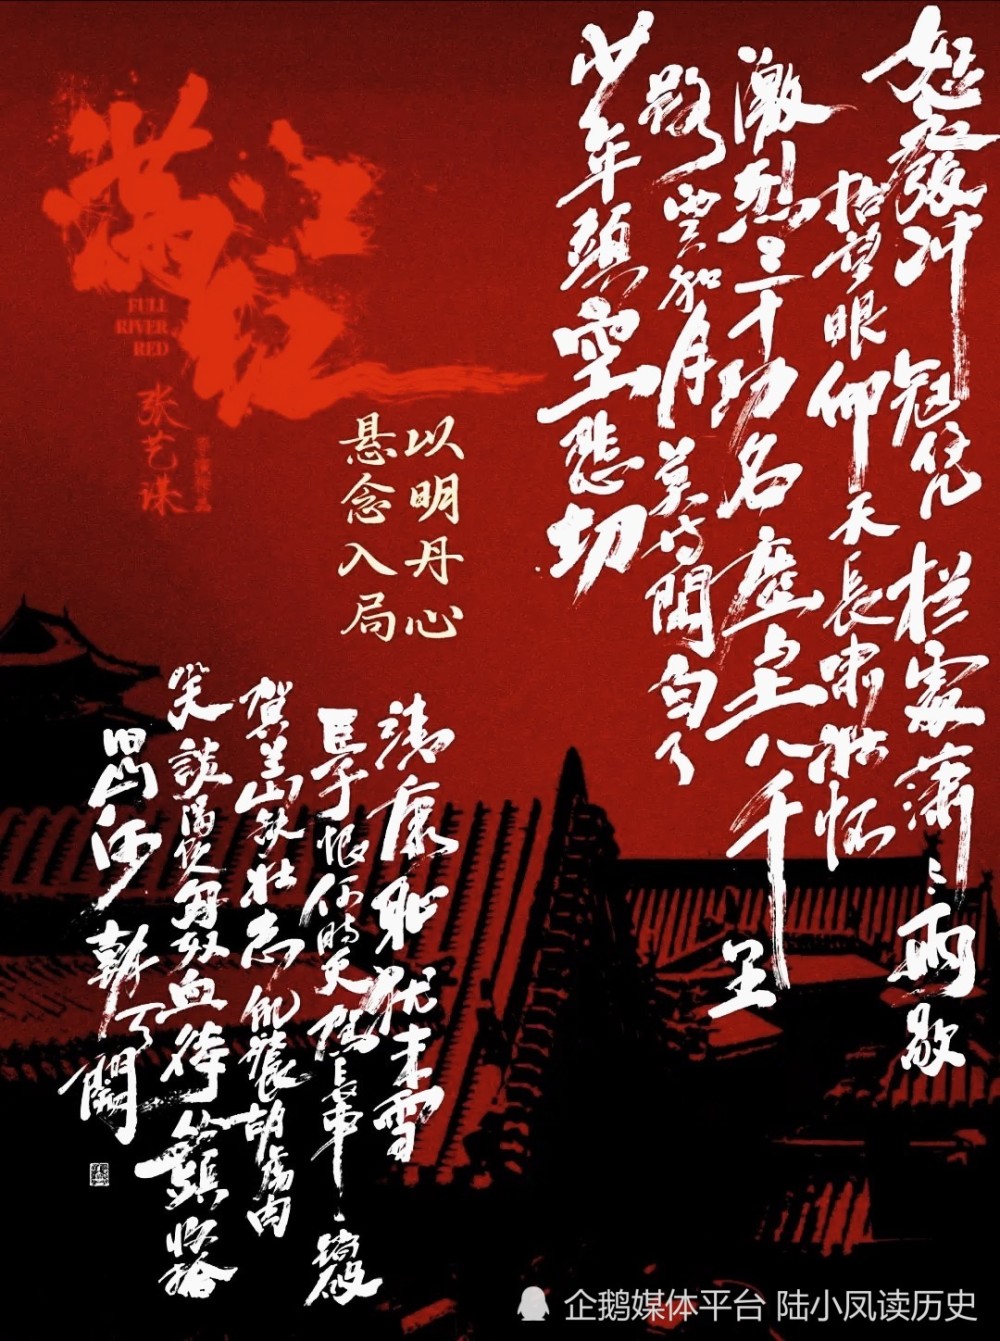 满江红
FULL
RIVER
RED
张艺谋
怒發冲冠凭栏處潇〻雨歇
抬望眼仰天長啸壮怀
激烈三十功名塵与土八千里
路雲和月莫等閒白了
少年頭空悲切
以明丹心
悬念入局
靖康耻犹未雪
臣子恨何時灭驾長車踏破
賀兰山缺壮志飢餐胡虏肉
笑談渴飲匈奴血待從頭收拾
旧山河朝天闕
企鹅媒体平台 陆小凤读历史